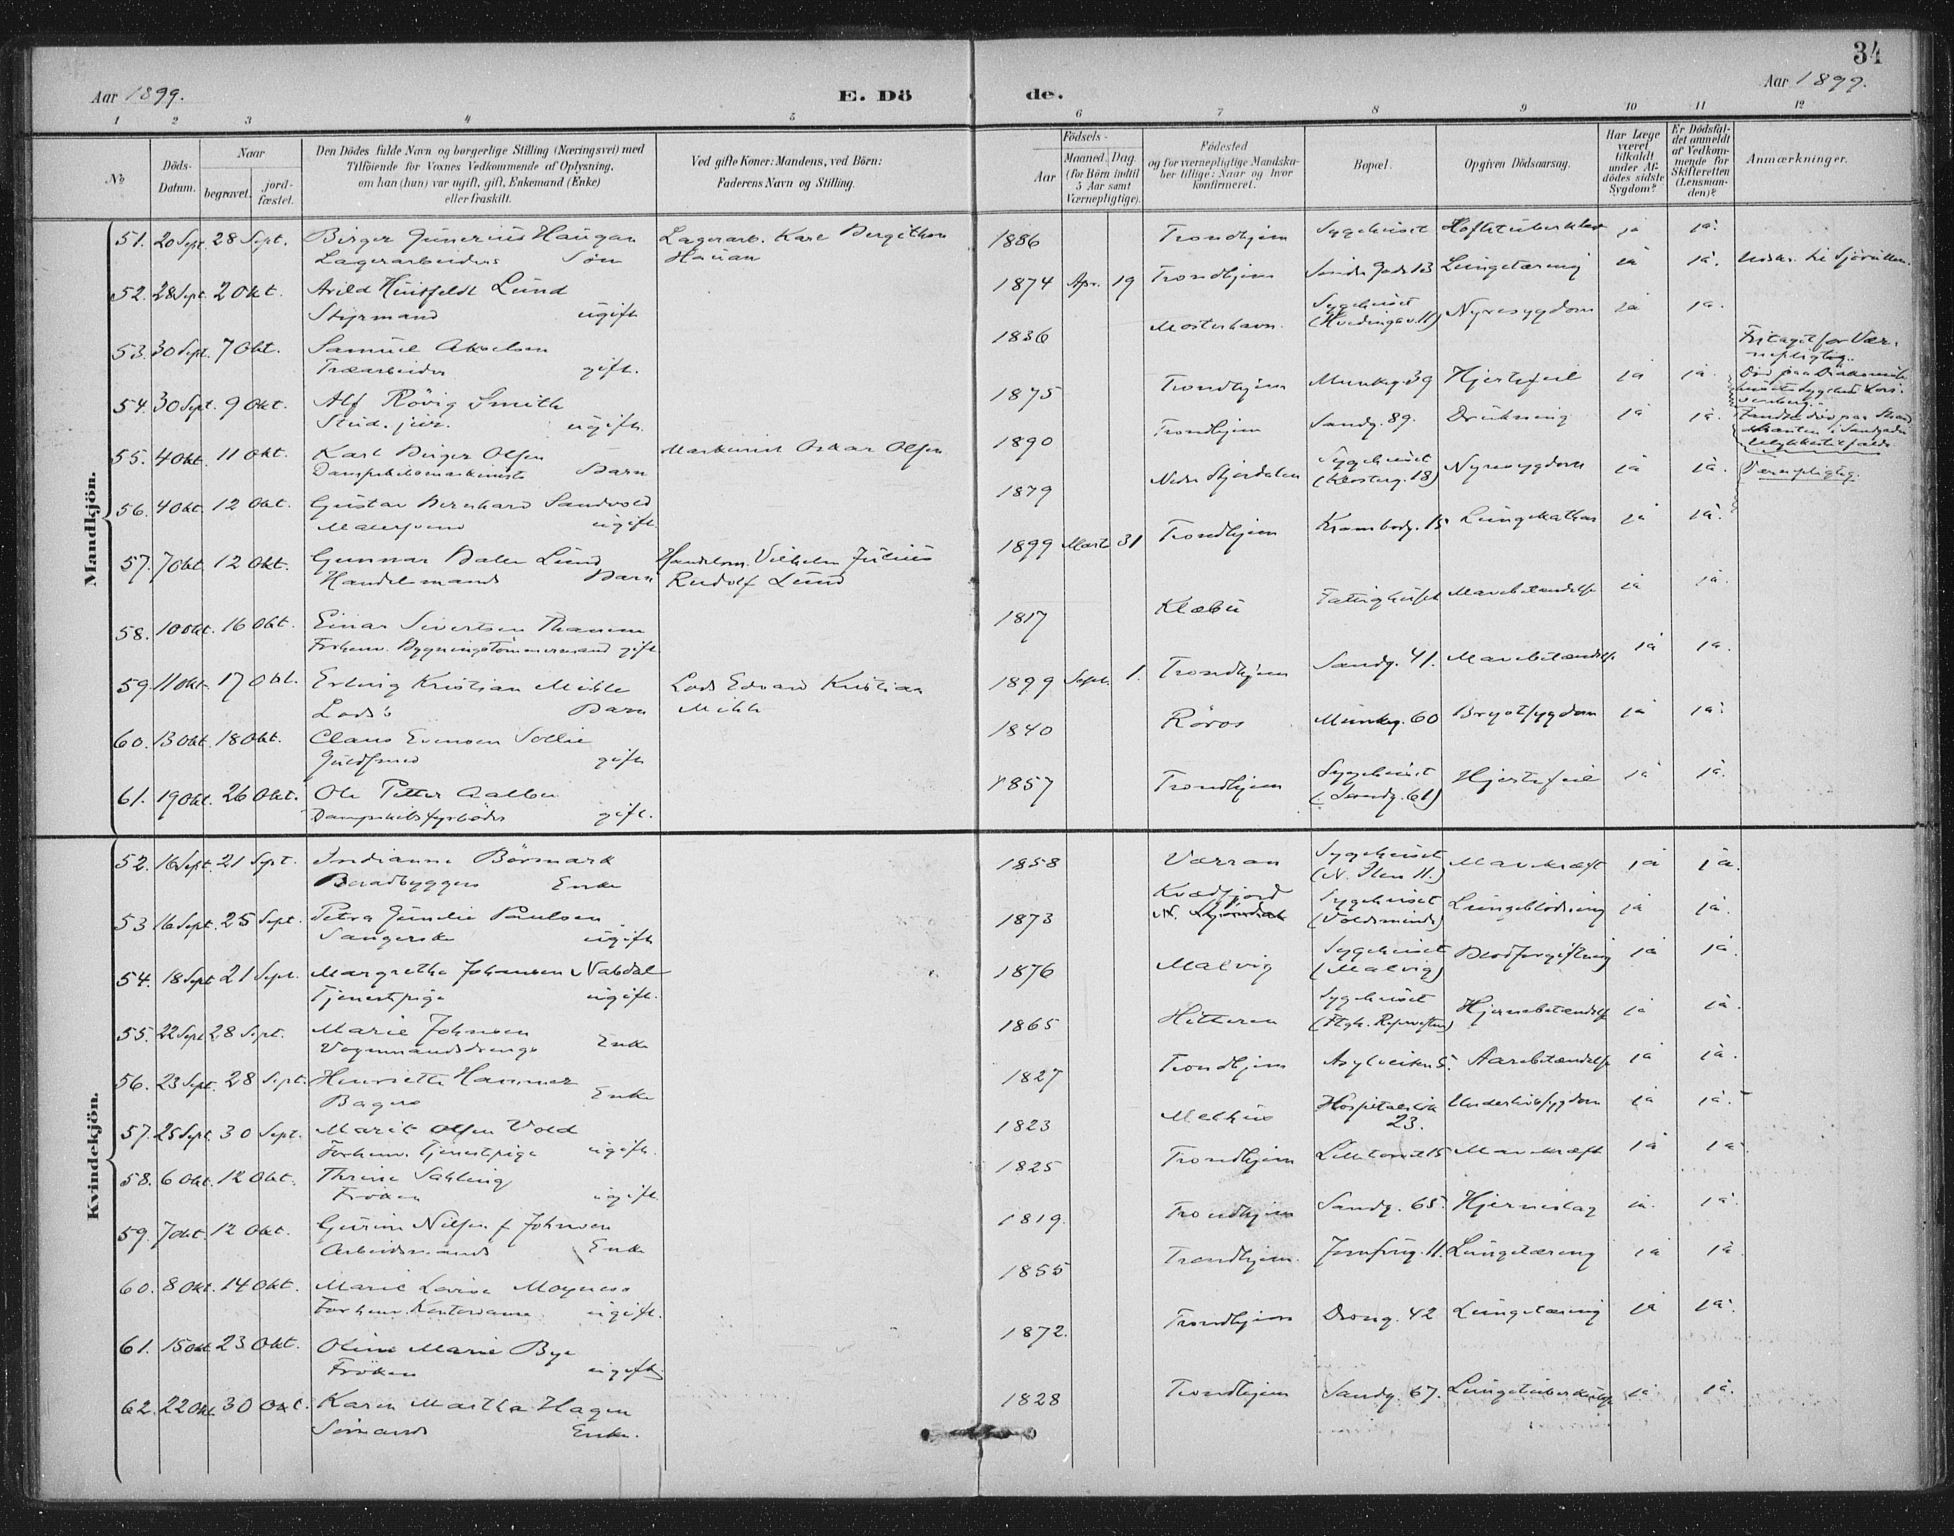 34
Aar 1899.
E. Dö de.
Aar 1899.
1 2 3 4 5 6 7 8 9 10 11 12
No
Döds-Datum.
Naar
begravet.
jord-fæstet.
Den Dödes fulde Navn og borgerlige Stilling (Næringsvei) med
Tilföiende for Voxnes Vedkommende af Oplysning,
om han (hun) var ugift, gift, Enkemand (Enke)
eller fraskilt.
Ved gifte Koner: Mandens, ved Börn:
Faderens Navn og Stilling.
Födsels-
Aar
Maaned. Dag.
(for Börn indtil
5 Aar samt
Værnepligtige).
Födested
og for værnepligtige Mandska-
ber tillige: Naar og hvor
konfirmeret.
Bopæl.
Opgiven Dödsaarsag.
Har Læge
været
tilkaldt
under Af-
dödes sidste
Sygdom?
Er Dödsfal-
det anmeldt
af Vedkom-
mende for
Skifteretten
(Lensman-
den)?
Anmærkninger.
Mandkjön.
51. 20 Sept. 28 Sept. Birger Gunerius Haugan Lagerarb. Karl Bergithon 1886 Trondhjem Sygehuset ja ja.
Lagerarbeiders Søn
52. 28 Sept. 2 Okt. Arild Huitfeldt Lund 1874 Apr. 19 Trondhjem Lungetæring ja ja.
Styrmand ugift
53. 30 Sept. 7 Okt. Samuel Akselsen 1836 Mosterhavn. Sygehuset Nyresygdom ja ja.
Træarbeider gift.
54. 30 Sept. 9 Okt. Alf Røvig Smith 1875 Trondhjem Munkeg. 39 Hjertefeil ja ja.
Stud. jur. ugift.
Fritaget for Vær-
nepligtig.
55. 4 Okt. 11 Okt. Karl Birger Olsen Maskinist Oskar Olsen 1890 Trondhjem Sandg. 89. Drukning ja ja.
Dampskibsmaskinists Barn
56. 4 Okt. 12 Okt. Gustav Bernhard Sandvold 1879 Nedre Stjørdalen Sygehuset (Klosterg. 18) Nyresygdom ja ja. Værnepligtig.
Malersvend ugift
57. 7 Okt. 12 Okt. Gunnar Dalen Lund Handelsm. Vilhelm Julius 1899 Marts 31 Trondhjem Krambodg. 15 Lungekathar ja ja.
Handelsmands Barn Rudolf Lund
58. 10 Okt. 16 Okt. Einar Sivertsen Thanem 1817 Klæbu Fattighuset Mavebetændelse ja ja.
Forhenv. Bygningstømmermand gift
59. 11 Okt. 17 Okt. Erling Kristian Mikle Lods Edvard Kristian 1899 Sept. 1. Trondhjem Sandg. 41. Mavebetændelse ja ja.
Lods's Barn
60. 13 Okt. 18 Okt. Claus Evensen Sollie 1840 Røros Munkeg. 60 Brystsygdom ja ja.
Guldsmed gift
61. 19 Okt. 26 Okt. Ole Petter Aalbu 1857 Trondhjem Sygehuset (Sandg. 61) Hjertefeil ja ja.
Dampskibsfyrbøder gift.
Kvindekjön.
52. 16 Sept. 21 Sept. Indianna Børmark 1858 Værran Sygehuset (N. Ilen 11.) Mavekræft ja ja.
Enke
53 16 Sept. 25 Sept. Petra Gundie Paulsen 1873 Kvædfjord Sygehuset (Voldsminde) Lungeblødning ja ja.
Sangerske ugift
54. 18 Sept. 21 Sept. Margrethe Johansen Nabdal 1876 Malvig Sygehuset (Malvig) Blodforgiftning ja ja.
Tjenestpige ugift.
55. 22 Sept. 28 Sept. Marie Johnsen 1865 Hitteren Sygehuset Hjernebetændelse ja ja.
Vognmandsdrengs Enke
56. 23 Sept. 28 Sept. Henriette Hammer 1827 Trondhjem Asylveiten 5. Aarebetændelse ja ja.
Bagers Enke
57. 25 Sept. 30 Sept. Marit Olsen Vold 1823 Melhus 23. Underlivssygdom ja ja.
Forhenv. Tjenestpige ugift.
58. 6 Okt. 12 Okt. Thrine Sahling 1825 Trondhjem Mavekræft ja ja.
Frøken ugift.
59. 7 Okt. 12 Okt. Gurine Nilsen f. Johnsen 1819. Trondhjem Sandg. 65. Hjerneslag ja. ja.
Arbeidsmands Enke
60. 8 Okt. 14 Okt. Marie Lovise 1855 Trondhjem. Jomfrug. 11. Lungetæring ja ja.
Forhenv. Kontordame ugift.
61. 15 Okt. 23 Okt. Oline Marie Bye 1872. Trondhjem Drong. 42 Lungetæring ja ja.
Frøken ugift
62. 22 Okt. 30 Okt. Karen Martha Hagen 1828 Trondhjem Sandg. 67. Lungetuberkulose ja ja.
Sømands Enke.